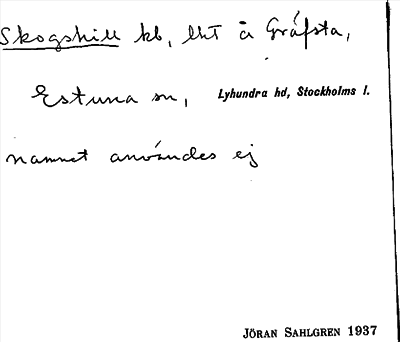 Skogshill kb, lht å Gräfsta,
Estuna sn, Lyhundra hd, Stockholms l.
namnet användes ej
JÖRAN SAHLGREN 1937